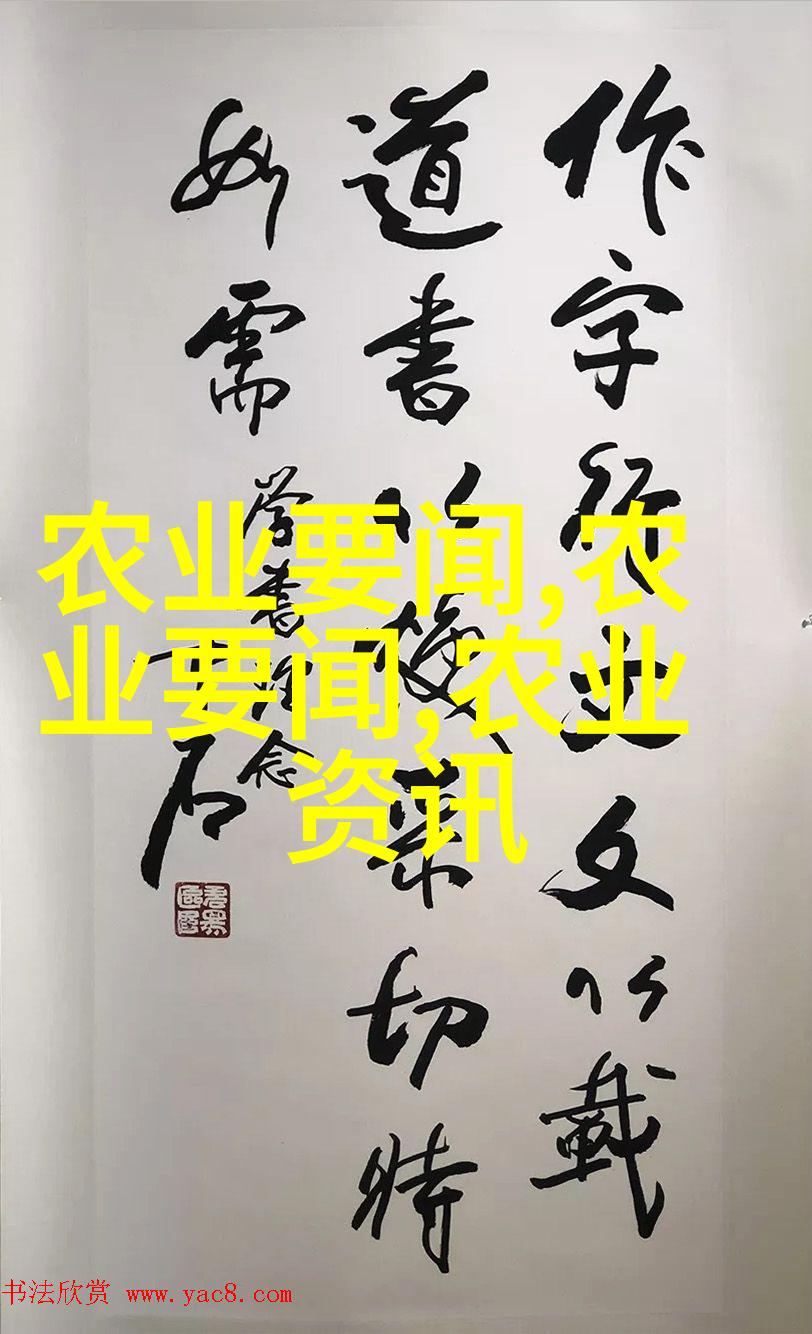 作字行文文以載
道書以焕采切時
如需
学書理念
农业要闻,农
业要闻,农业
资讯
书法欣赏 www.yac8.com